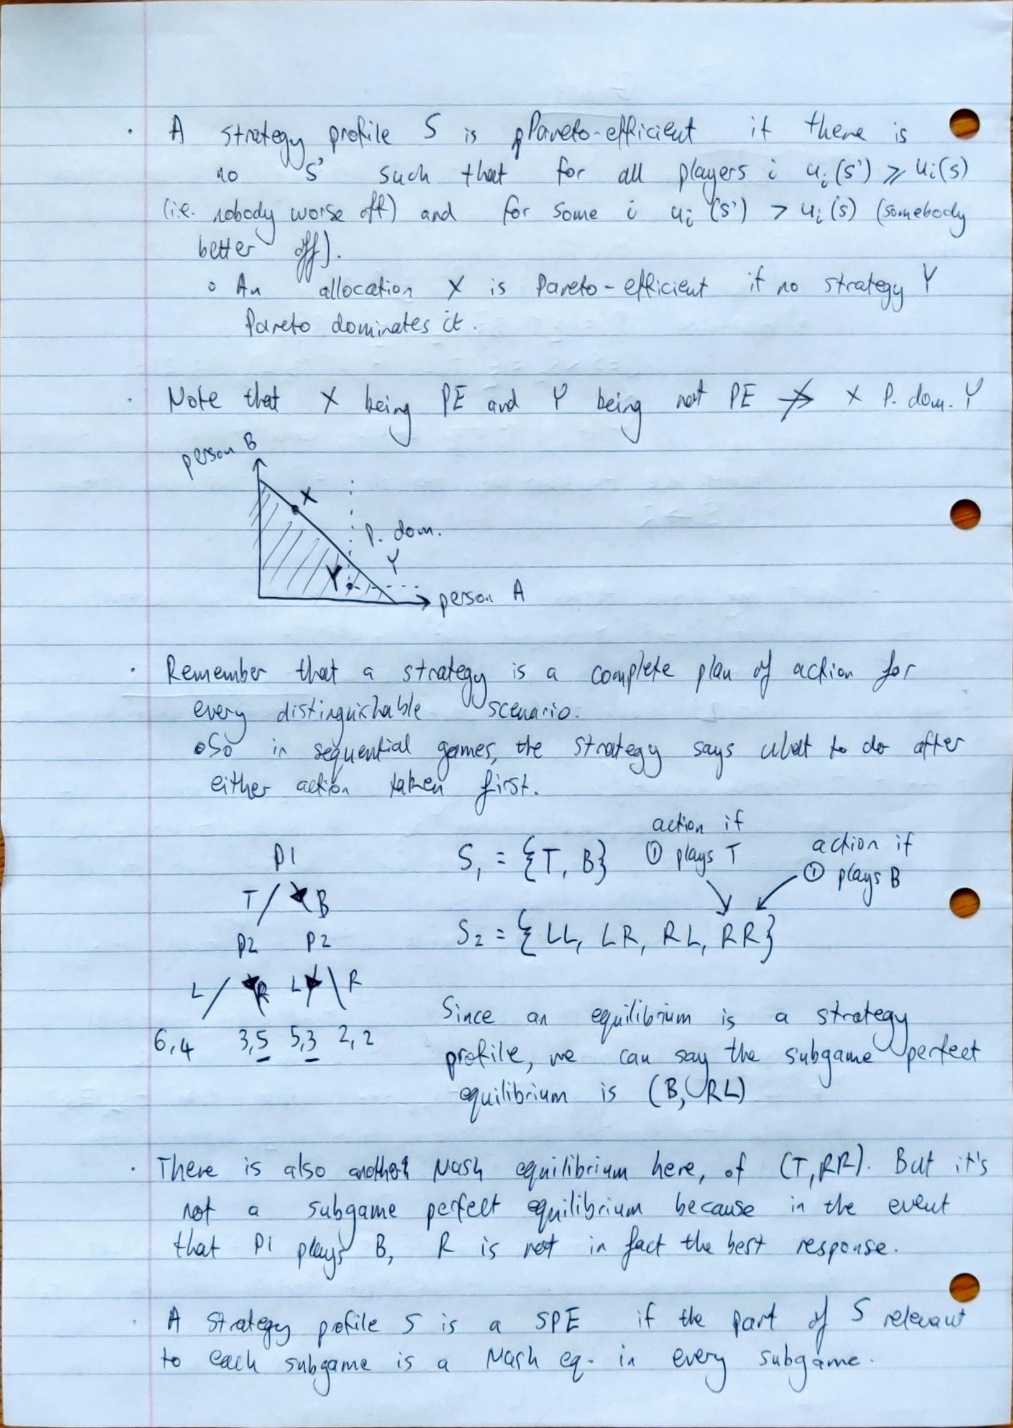 · A strategy profile S is Pareto-efficient if there is
no S' such that for all players i uᵢ(s') ⩾ uᵢ(s)
(i.e. nobody worse off) and for some i uᵢ(s') > uᵢ(s) (somebody
better off).
∘ An allocation X is Pareto-efficient if no strategy Y
Pareto dominates it.
· Note that X being PE and Y being not PE ⇏ X P. dom. Y
person B
X
P. dom.
Y
Y
person A
· Remember that a strategy is a complete plan of action for
every distinguishable scenario.
∘ So in sequential games, the strategy says what to do after
either action taken first.
P1
T B
P2 P2
L R L R
6,4 3,5 5,3 2,2
S₁ = {T, B}
action if
① plays T
action if
① plays B
S₂ = {LL, LR, RL, RR}
Since an equilibrium is a strategy
profile, we can say the subgame perfect
equilibrium is (B, RL)
· There is also another Nash equilibrium here, of (T,RR). But it's
not a subgame perfect equilibrium because in the event
that P1 plays B, R is not in fact the best response.
· A strategy profile S is a SPE if the part of S relevant
to each subgame is a Nash eq. in every subgame.